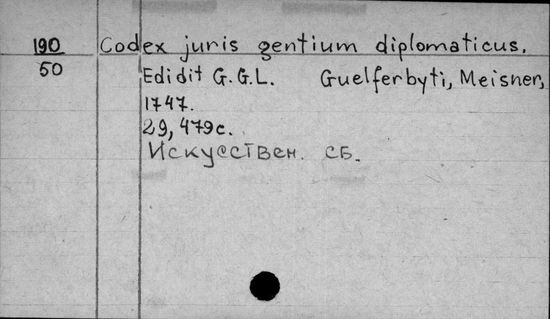 190 Codex juris gentium diplomaticus.
50 Edidit G.G.L. Guelferbyti, Meisner,
1747.
29, 479с.
Искусствен. сб.